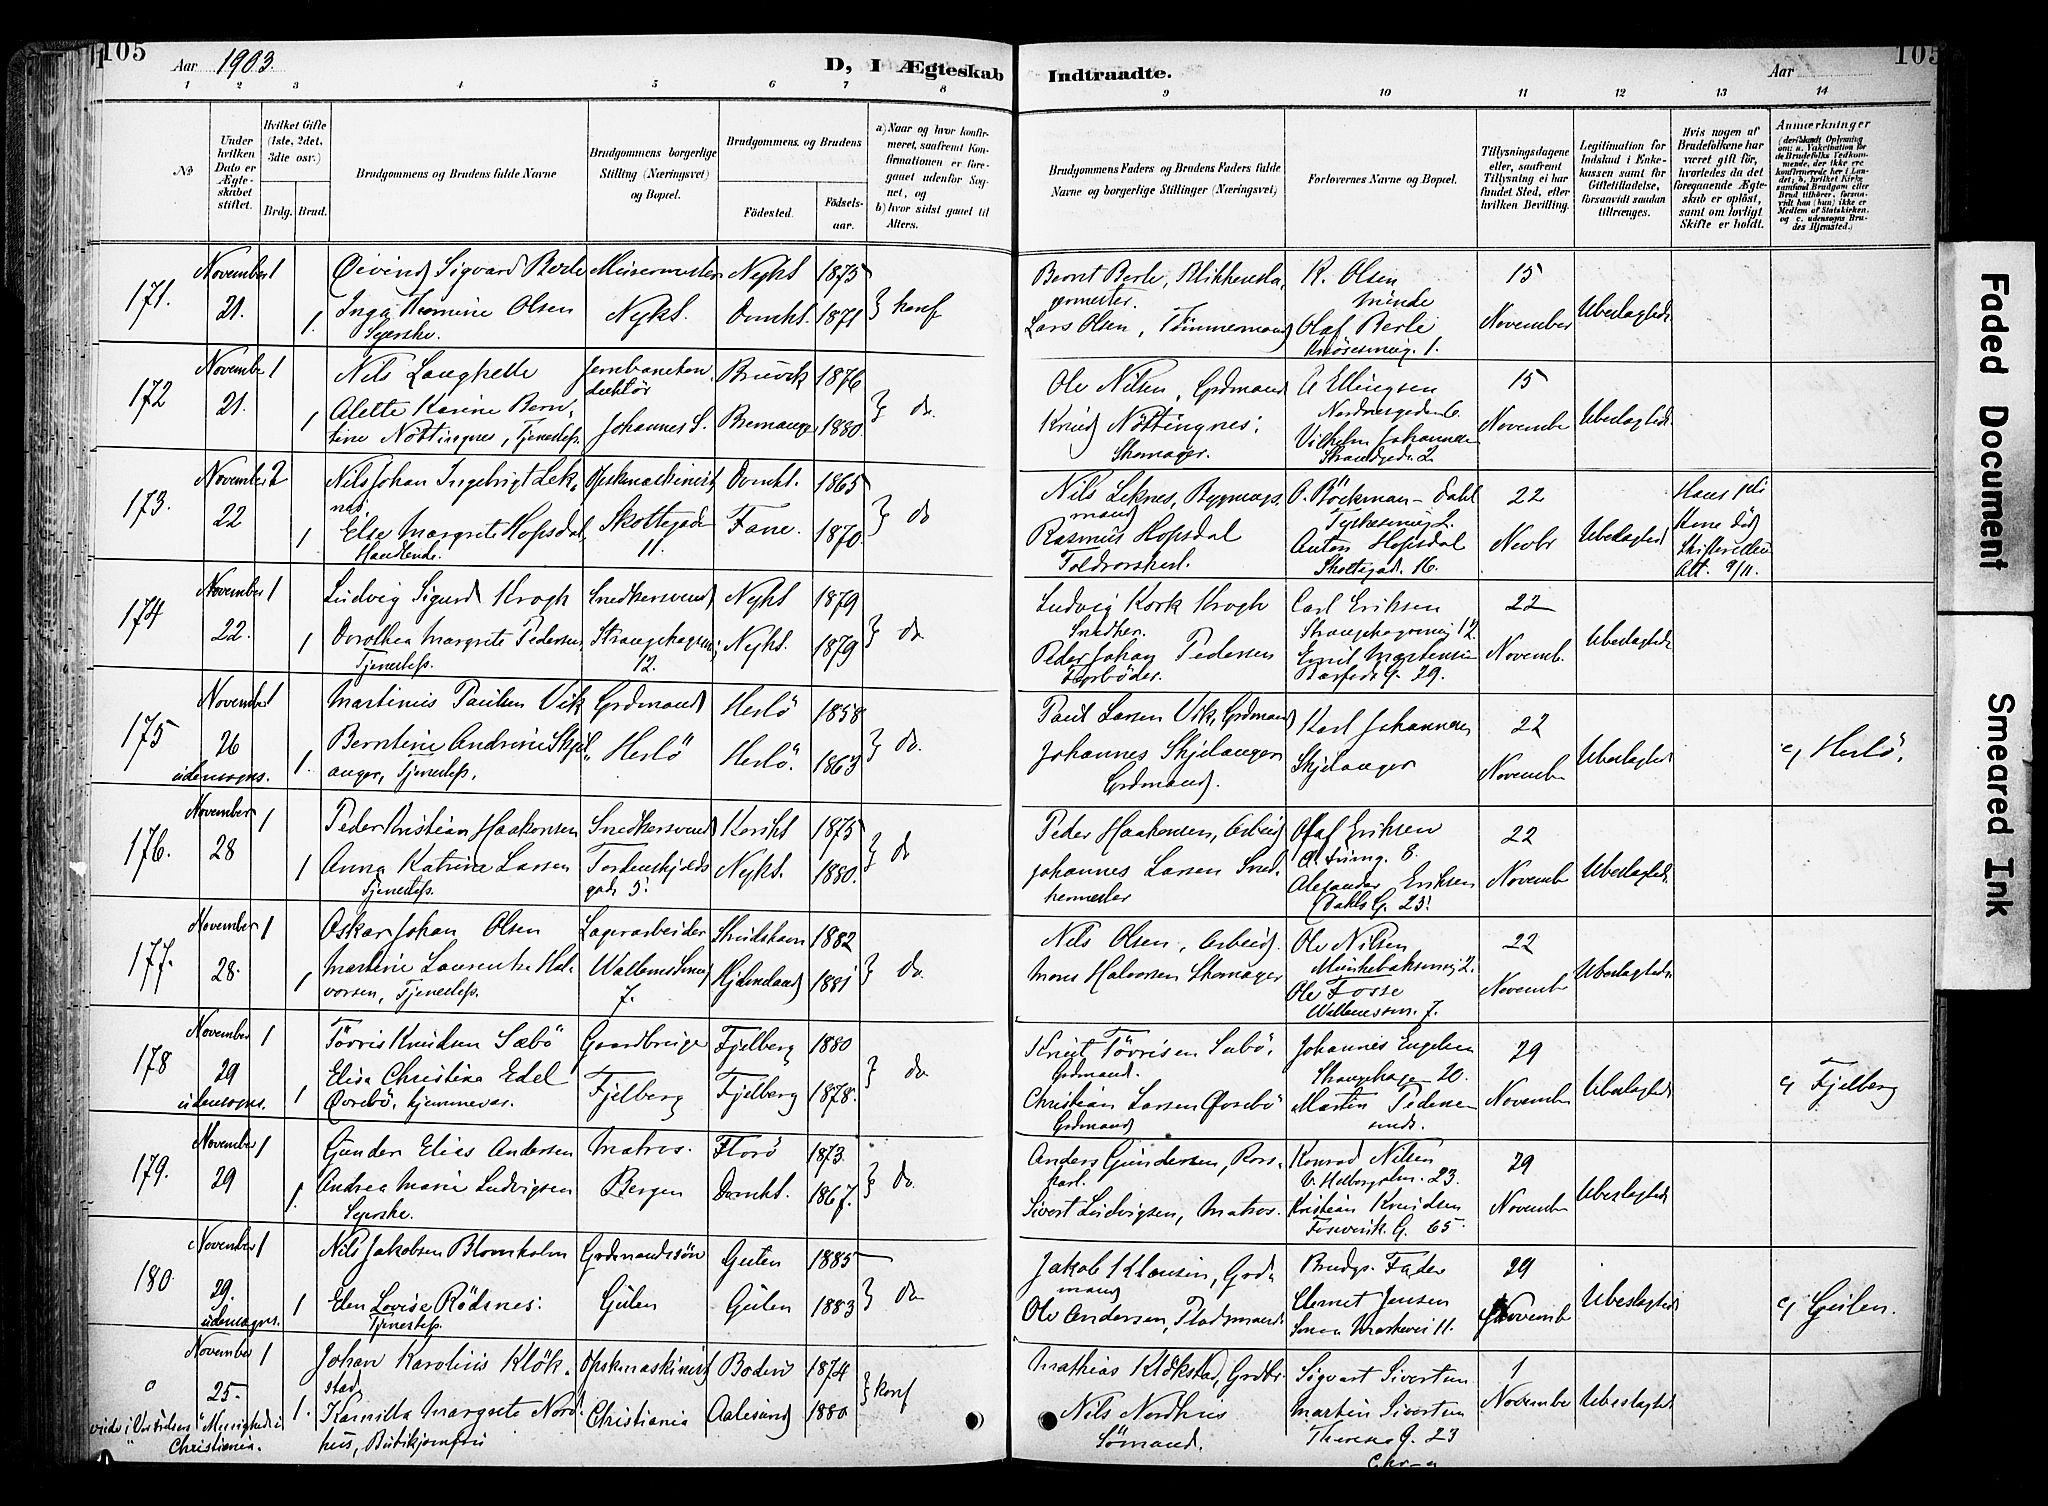 105
Aar 1903.
D, I Ægteskab Indtraadte.
Aar
105
1 2 3 4 5 6 7 8 9 10 11 12 13 14
No
Under hvilken Dato er Ægteskabet stiftet.
Hvilket Gifte (1ste, 2det, 3die osv.)
Brdg. Brud.
Brudgommens og Brudens fulde Navne
Brudgommens borgerlige Stilling (Næringsvei) og Bopæl.
Brudgommens og Brudens
Fødested.
Fødsels-aar.
a) Naar og hvor konfirmeret, saafremt Konfirmationen er foregaaet udenfor Sognet, og
b) hvor sidst gaaet til Alters.
Brudgommens Faders og Brudens Faders fulde Navne og borgerlige Stillinger (Næringsvei)
Forlovernes Navne og Bopæl.
Tillysningsdagene eller, saafremt Tillysning ei har fundet Sted, efter hvilken Bevilling.
Legitimation for Indskud i Enkekassen samt for Giftetilladelse, forsaavidt saadan tiltrænges.
Hvis nogen af Brudefolkene har været gift før, hvorledes da det foregaaende Ægteskab er opløst, samt om lovligt Skifte er holdt.
Anmærkninger
171. November 21. 1 1.
Øivind Sigvard Berle
Inga Hermine Olsen
Syerske.
Murermester
Nykt.
Nykt 1875
Domkt. 1871
konf
Bernt Berle, Blikkenslagermester.
Lars Olsen, Tømmermand
K. Olsen
Minde
Olaf Berle
15
November
Ubeslagtede
172 November 21. 1 1
Nils Langhelle
Alette Karine Berntine Nöttingnes, Tjenestep.
Jernbanekonduktör
Johannes S.
Bruvik 1876
Bremanger 1880.
do.
Ole Nilsen, Grdmand
Knud Nöttingnes,
Skomager.
A Ellingsen
Nordnesgaden 6.
Vilhelm Johannesen
Strandgad. 2.
15
November
Ubeslagtede
173. November 22 2 1
Nils Johan Ingebrigt Leknes,
Else Margrete Hopsdal,
Handlende.
Opskmaskinist
Skottegaden
11.
Domkt. 1865
Fane. 1870.
do
Nils Leknes, Bygningsmand
Rasmus Hopsdal
Toldrorskarl.
O. Böckman-Dahl
Anton Hopsdal
Skottegad. 16.
22
Novbr
Ubeslagtede
Hans
Kone död
Skifteretten
Att. 9/11.
174 November 22. 1 1
Ludvig Sigurd Krogh
Dorothea Margrete Pedersen,
Tjenestep.
Snedkersvend
Strangehagen
12.
Nykt 1879
Nykt. 1879
do
Ludvig Kork Krogh
Snedker.
Peder Johan Pedersen
Carl Eriksen
Strangehagen 12.
Emil Martensen
29.
22
Novemb.
Ubeslagtede
175 November 26 udensogns. 1 1.
Martinus Paulsen Vik
Berntine Andrine Skjelanger, Tjenestep.
Grdmand
Herlö
Herlö 1858
Herlö. 1863
do.
Paul Larsen Vik, Grdmand
Johannes Skjelanger
Grdmand.
Karl Johannesen
Skjelanger
22
November
Ubeslagtede
c) Herlö.
176. November 28 1 1
Peder Kristian Haakonsen
Anna Katrine Larsen
Tjenestep.
Snedkersvend
Tordenskjolds
gad. 5.
Korskt 1875
Nykt. 1880.
do
Peder Haakonsen, Arbeid.
Johannes Larsen Snedkermester
Olaf Eriksen
8.
Alexander Eriksen
Dahls G. 23.
22
November
Ubeslagtede
177. November 28. 1 1
Oskar Johan Olsen
Martine Laurentze Halvorsen, Tjenestep.
Lagerarbeider
7.
Skudshavn 1882
Hjelmeland 1881
do.
Nils Olsen, Arbeid.
Mons Halvorsen Skomager
Ole Nilsen
Munkebaksvei 2.
Ole Fosse
7.
22
Novemb
Ubeslagtede
178 November 29 udensogns. 1 1
Törris Knudsen Sæbö
Elisa Christina Edel
Øvrebö, hjemmevær.
Gaardbruger
Fjelberg
Fjelberg 1880
Fjelberg 1878.
do
Knut Törrisen Sæbö,
Grdmand.
Christian Larsen Øvrebö
Grdmand
Johannes Engelsen
Strangehagen 20.
Martin Pedersen
smds.
29
November
Ubeslagtede
c) Fjelberg
179. November 29 1 1.
Gunder Elias Andersen
Andrea Marie Ludvigsen
Syerske.
Matros.
Bergen
Florö 1873.
Domkt. 1867.
do
Anders Gundersen, Rorskarl.
Sivert Ludvigsen, Matros.
Konrad Nilsen
23.
Kristian Knudsen
G. 65.
29
November
Ubeslagtede
180. November 29. udensogns. 1 1
Nils Jakobsen Blomholm
Elen Lovise Rödsnes.
Tjenestep.
Grdmandssön
Gulen
Gulen 1885
Gulen 1883
do
Jakob Klausen, Grdmand
Ole Andersen, Pladsmand.
Brudgs. Fader
Clemet Jensen
11.
29
Novemb
Ubeslagtede
c) Gulen.
0 November 25. 1 1.
Menighed i
Christiania.
Johan Karolius Klökstad
Kamilla Margrete Nordhus, Butikjomfru
Opskmaskinist
Christiania
Bodin 1874
Aalesund 1880
konf
Mathias Klökstad, Grdbr.
Nils Nordhus
Sömand.
Sigvart Sivertsen
Martin Sivertsen
Theresesg. 23
Chr-a
1
November
Ubeslagtede
Faded Document
Smeared Ink